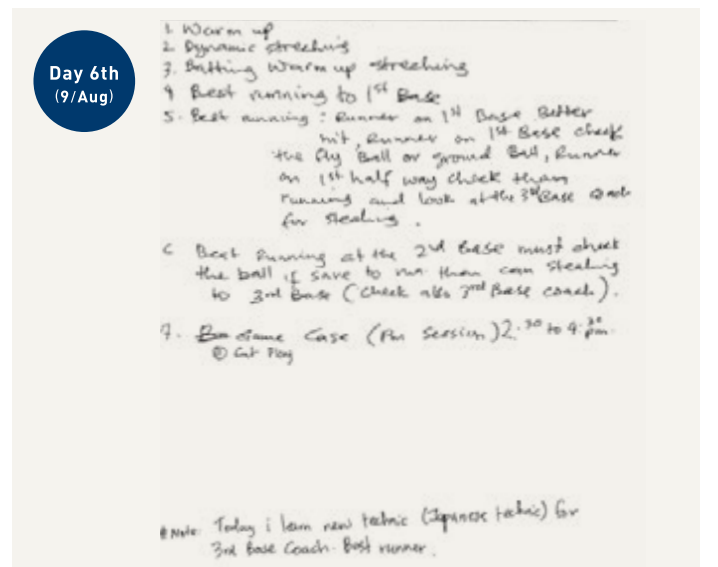 Day 6th
(9/Aug)
1. Warm up
2. Dynamic streching
3. Batting Warm up streching
4 Best running to 1st Base
5. Best running : Runner on 1st Base Better
hit, Runner on 1st Base check
the fly Ball or ground Ball, Runner
on 1st half way check than
running and look at the 3rd Base Coach
for stealing .
Best Running at the 2nd Base must check
the ball if save to run than can stealing
to 3rd Base (Check also 3rd Base coach).
7. Game Case (Pm Session) 2.30 to 4.30 pm.
Cut Play
# Note: Today i learn new technic (Japanese technic) for
3rd Base Coach. Best runner.